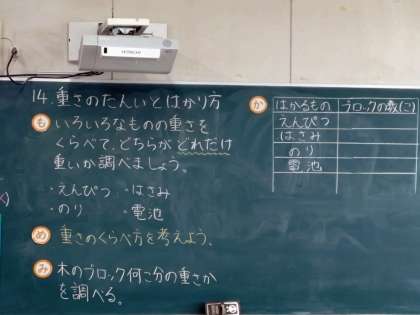 HITACHI
14.重さのたんいとはかり方
も いろいろなものの重さを
くらべて、どちらがどれだけ
重いか調べましょう。
・えんぴつ ・はさみ
・のり ・電池
め 重さのくらべ方を考えよう。
み 木のブロック何こ分の重さか
を調べる。
か はかるもの ブロックの数(こ)
えんぴつ
はさみ
のり
電池